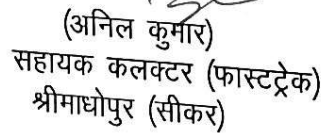 (अनिल कुमार)
सहायक कलक्टर (फास्टट्रेक)
श्रीमाधोपुर (सीकर)